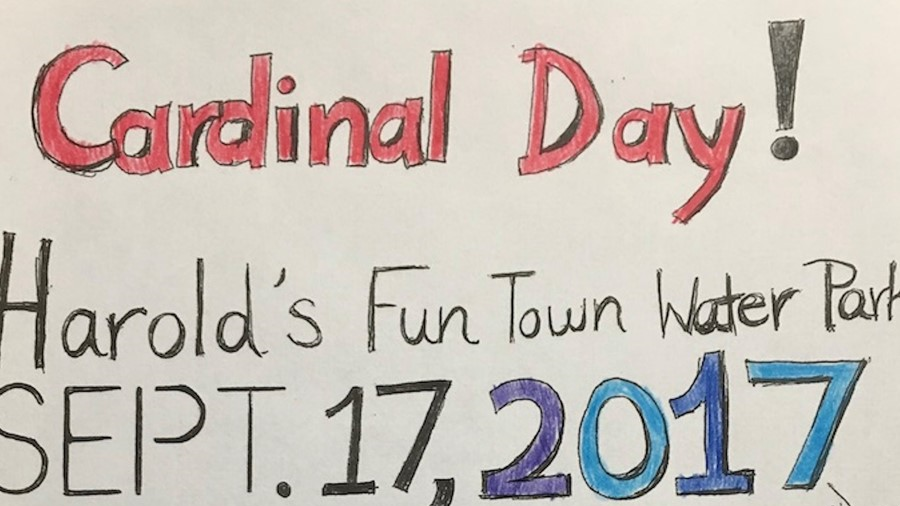 Cardinal Day!
Harold's Fun Town Water Park
SEPT. 17, 2017